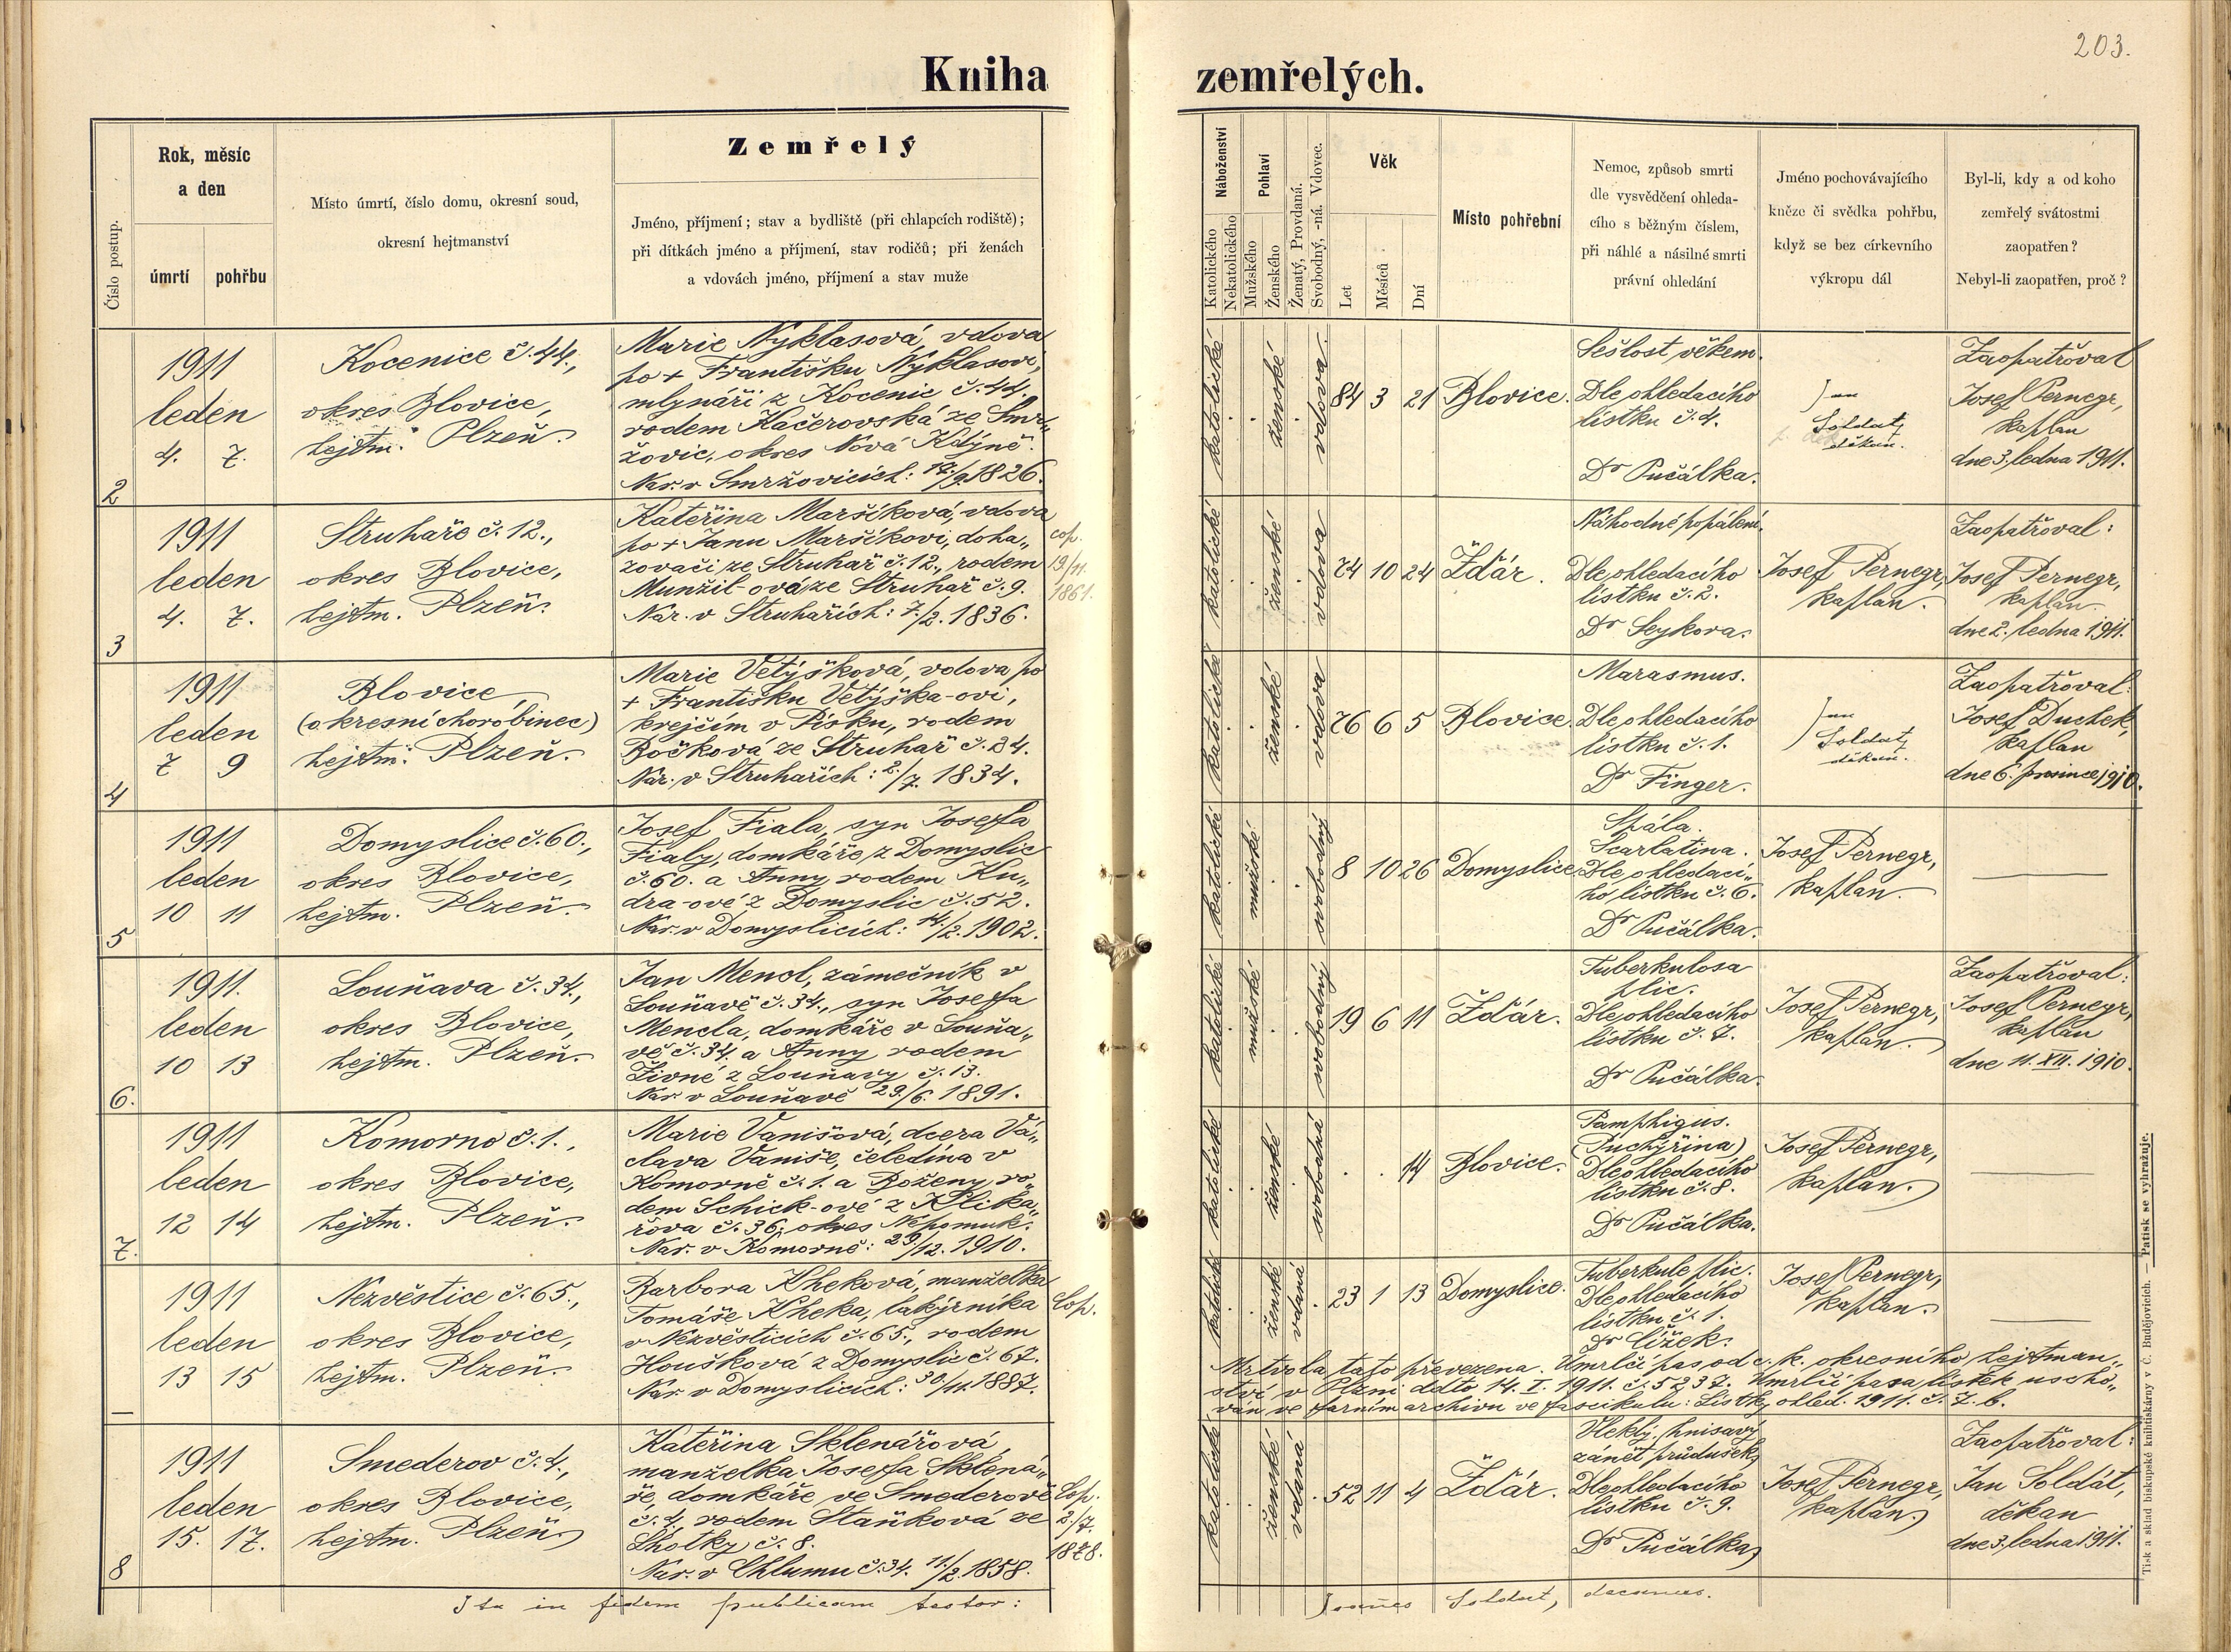 203.
Kniha zemřelých.
Číslo postup.
Rok, měsíc
a den
úmrtí
pohřbu
Místo úmrtí, číslo domu, okresní soud,
okresní hejtmanství
Zemřelý
Jméno, příjmení; stav a bydliště (při chlapcích rodiště);
při dítkách jméno a příjmení, stav rodičů; při ženách
a vdovách jméno, příjmení a stav muže
Náboženství
Katolického
Nekatolického
Pohlaví
Mužského
Ženského
Ženatý, Provdaná.
Svobodný, -ná. Vdovec.
Věk
Let
Měsíců
Dní
Místo pohřební
Nemoc, způsob smrti
dle vysvědčení ohleda-
cího s běžným číslem,
při náhlé a násilné smrti
právní ohledání
Jméno pochovávajícího
kněze či svědka pohřbu,
když se bez církevního
výkropu dál
Byl-li, kdy a od koho
zemřelý svátostmi
zaopatřen?
Nebyl-li zaopatřen, proč?
2
1911
leden
4. 7.
Kocenice č. 44.,
okres Blovice,
hejtm. Plzeň.
Marie Nyklasová, vdova
po + Františku Nyklasovi,
mlynáři z Kocenic č. 44,
rodem Kačerovská ze Smr„
žovic, okres Nová Kdýně.
Nar. v Smržovicích: 12./9. 1826.
katolické
ženské
vdova.
84 3 21
Blovice.
Sešlost věkem.
Dle ohledacího
lístku č. 4.
Dr Pučálka.
Jan
Soldát,
děkan.
Zaopatřoval
Josef Pernegr,
kaplan
dne 3. ledna 1911.
3
1911
leden
4. 7.
Struhaře č. 12.,
okres Blovice,
hejtm. Plzeň.
Kateřina Maršíková, vdova
po + Janu Maršíkovi, doha„
zovači ze Struhař č. 12., rodem
Munžil-ová ze Struhař č. 9.
Nar. v Struhařích: 7./2. 1836.
cop.
19/11.
1861.
katolické
ženské
vdova
74 10 24
Žďár.
Náhodné popálení.
Dle ohledacího
lístku č. 2.
Dr Seykora.
Josef Pernegr,
kaplan.
Zaopatřoval:
Josef Pernegr,
kaplan
dne 2. ledna 1911.
4
1911
leden
7 9
Blovice,
(okresní chorobinec)
hejtm. Plzeň.
Marie Vetýšková, vdova po
+ Františku Vetýška-ovi,
krejčím v Písku, rodem
Bočková ze Struhař č. 24.
Nar. v Struhařích: 2./7. 1834.
katolické
ženské
vdova
76 6 5
Blovice.
Marasmus.
Dle ohledacího
lístku č. 1.
Dr Finger.
Jan
Soldát,
děkan.
Zaopatřoval:
Josef Duchek,
kaplan
dne 6. prosince 1910.
5
1911
leden
10 11
Domyslice č. 60.,
okres Blovice,
hejtm. Plzeň.
Josef Fiala, syn Josefa
Fialy, domkáře z Domyslic
č. 60. a Anny rodem Ku„
dra-ové z Domyslic č. 52.
Nar. v Domyslicích: 14./2. 1902.
katolické
mužské
svobodný
8 10 26
Domyslice
Spála.
Scarlatina.
Dle ohledací„
ho lístku č. 6.
Dr Pučálka.
Josef Pernegr,
kaplan.
6.
1911.
leden
10 13
Louňava č. 34.,
okres Blovice,
hejtm. Plzeň.
Jan Mencl, zámečník v
Louňavě č. 34., syn Josefa
Mencla, domkáře v Louňa„
vě č. 34. a Anny rodem
Živné z Louňavy č. 13.
Nar. v Louňavě 29./6. 1891.
katolické
mužské
svobodný
19 6 11
Žďár.
Tuberkulosa
plic.
Dle ohledacího
lístku č. 7.
Dr Pučálka.
Josef Pernegr,
kaplan.
Zaopatřoval:
Josef Pernegr,
kaplan
dne 11. XII. 1910.
7.
1911
leden
12 14
Komorno č. 1.,
okres Blovice,
hejtm. Plzeň.
Marie Vanišová, dcera Vá„
clava Vaniše, čeledína v
Komorně č. 1. a Boženy ro„
dem Schick-ové z Klika„
řova č. 36, okres Nepomuk.
Nar. v Komorně: 29./12. 1910.
katolické
ženské
svobodná
14
Blovice.
Pamphigus.
(Puchýřina)
Dle ohledacího
lístku č. 8.
Dr Pučálka.
Josef Pernegr,
kaplan.
1911
leden
13 15
Nezvěstice č. 65.,
okres Blovice,
hejtm. Plzeň.
Barbora Kheková, manželka
Tomáše Kheka, lakýrníka
v Nezvěsticích č. 65., rodem
Houšková z Domyslic č. 67.
Nar. v Domyslicích: 30./11. 1887.
Cop.
katolické
ženské
vdaná
23 1 13
Domyslice.
Tuberkule plic.
Dle ohledacího
lístku č. 1.
Dr Čížek.
Josef Pernegr,
kaplan.
Mrtvola tato převezena. Umrlčí pas od c. k. okresního hejtman„
ství v Plzni ddto 14. I. 1911. č. 5237. Umrlčí pas a lístek uscho„
ván ve farním archivu ve fascikulu: Lístky ohled. 1911. č. 7. b.
8
1911
leden
15. 17.
Smederov č. 4.,
okres Blovice,
hejtm. Plzeň.
Kateřina Sklenářová,
manželka Josefa Sklená„
ře, domkáře ve Smederově
č. 4, rodem Staňková ve
Lhotky č. 8.
Nar. v Chlumu č. 34. 11./2. 1858.
Cop.
2./7.
1878.
katolické
ženské
vdaná
52 11 4
Žďár.
Vleklý, hnisavý
zánět průdušek,
Dle ohledacího
lístku č. 9.
Dr Pučálka
Josef Pernegr,
kaplan
Zaopatřoval:
Jan Soldát,
děkan
dne 3. ledna 1911.
Ita in fidem publicam testor: Joannes Soldát, decanus.
Tisk a sklad biskupské knihtiskárny v Č. Budějovicích. — Patisk se vyhražuje.